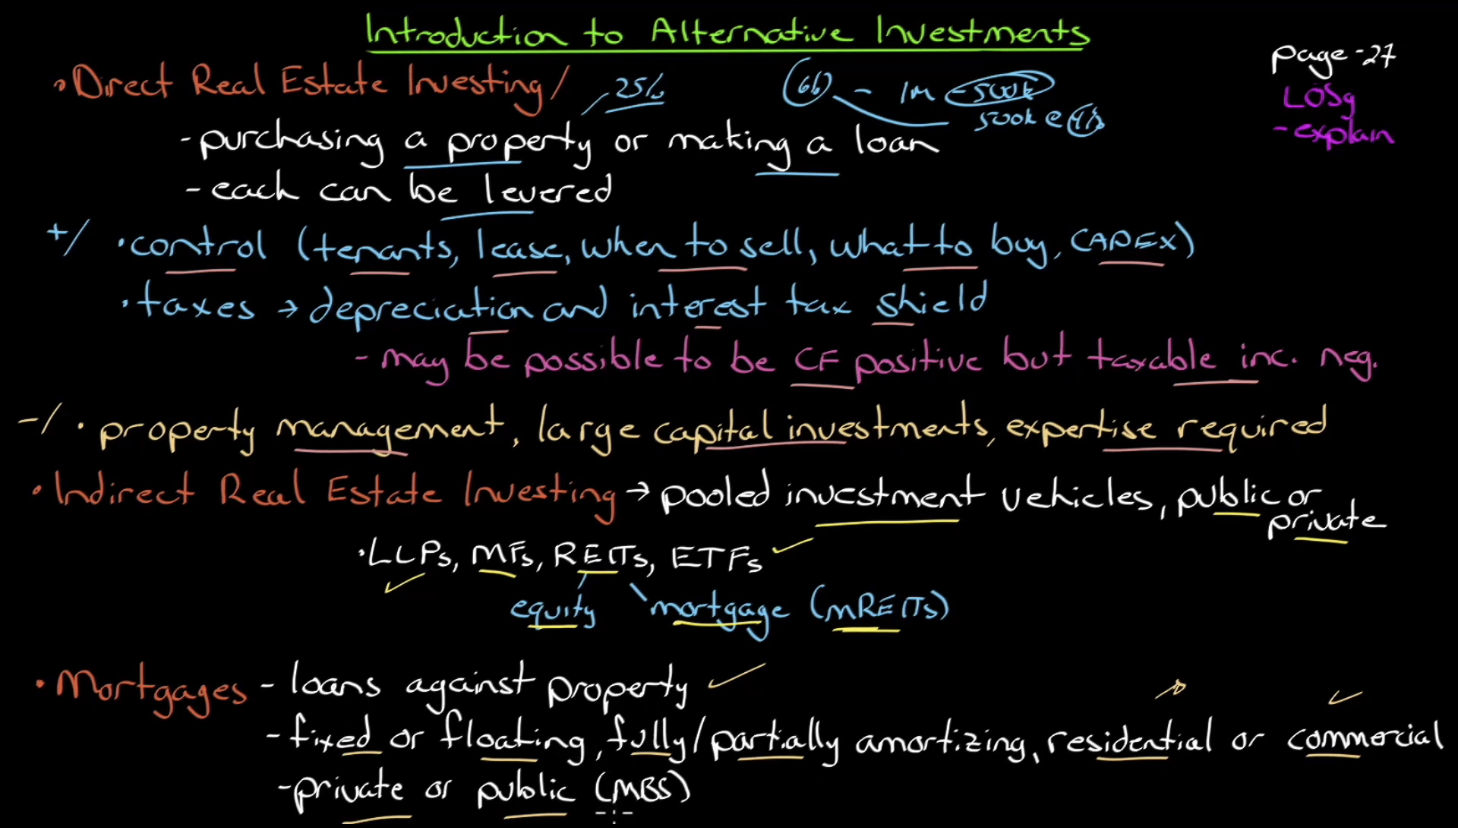 Introduction to Alternative Investments
page - 27
LOSg
- explain
• Direct Real Estate Investing /
25%
- 1M - 500k
500k @
- purchasing a property or making a loan
- each can be levered
+/ • control (tenants, lease, when to sell, what to buy, CAPEX)
• taxes → depreciation and interest tax shield
- may be possible to be CF positive but taxable inc. neg.
-/ • property management, large capital investments, expertise required
• Indirect Real Estate Investing → pooled investment vehicles, public or private
• LLPs, MFs, REITs, ETFs
equity mortgage (mREITs)
• Mortgages - loans against property
- fixed or floating, fully/partially amortizing, residential or commercial
- private or public (MBS)